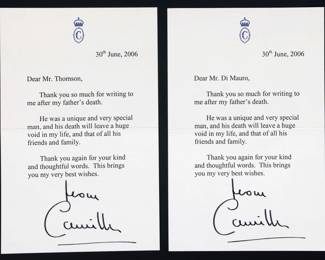 C
30th June, 2006
Dear Mr. Thomson,
Thank you so much for writing to
me after my father's death.
He was a unique and very special
man, and his death will leave a huge
void in my life, and that of all his
friends and family.
Thank you again for your kind
and thoughtful words. This brings
you my very best wishes.
from
Camilla
C
30th June, 2006
Dear Mr. Di Mauro,
Thank you so much for writing to
me after my father's death.
He was a unique and very special
man, and his death will leave a huge
void in my life, and that of all his
friends and family.
Thank you again for your kind
and thoughtful words. This brings
you my very best wishes.
from
Camilla